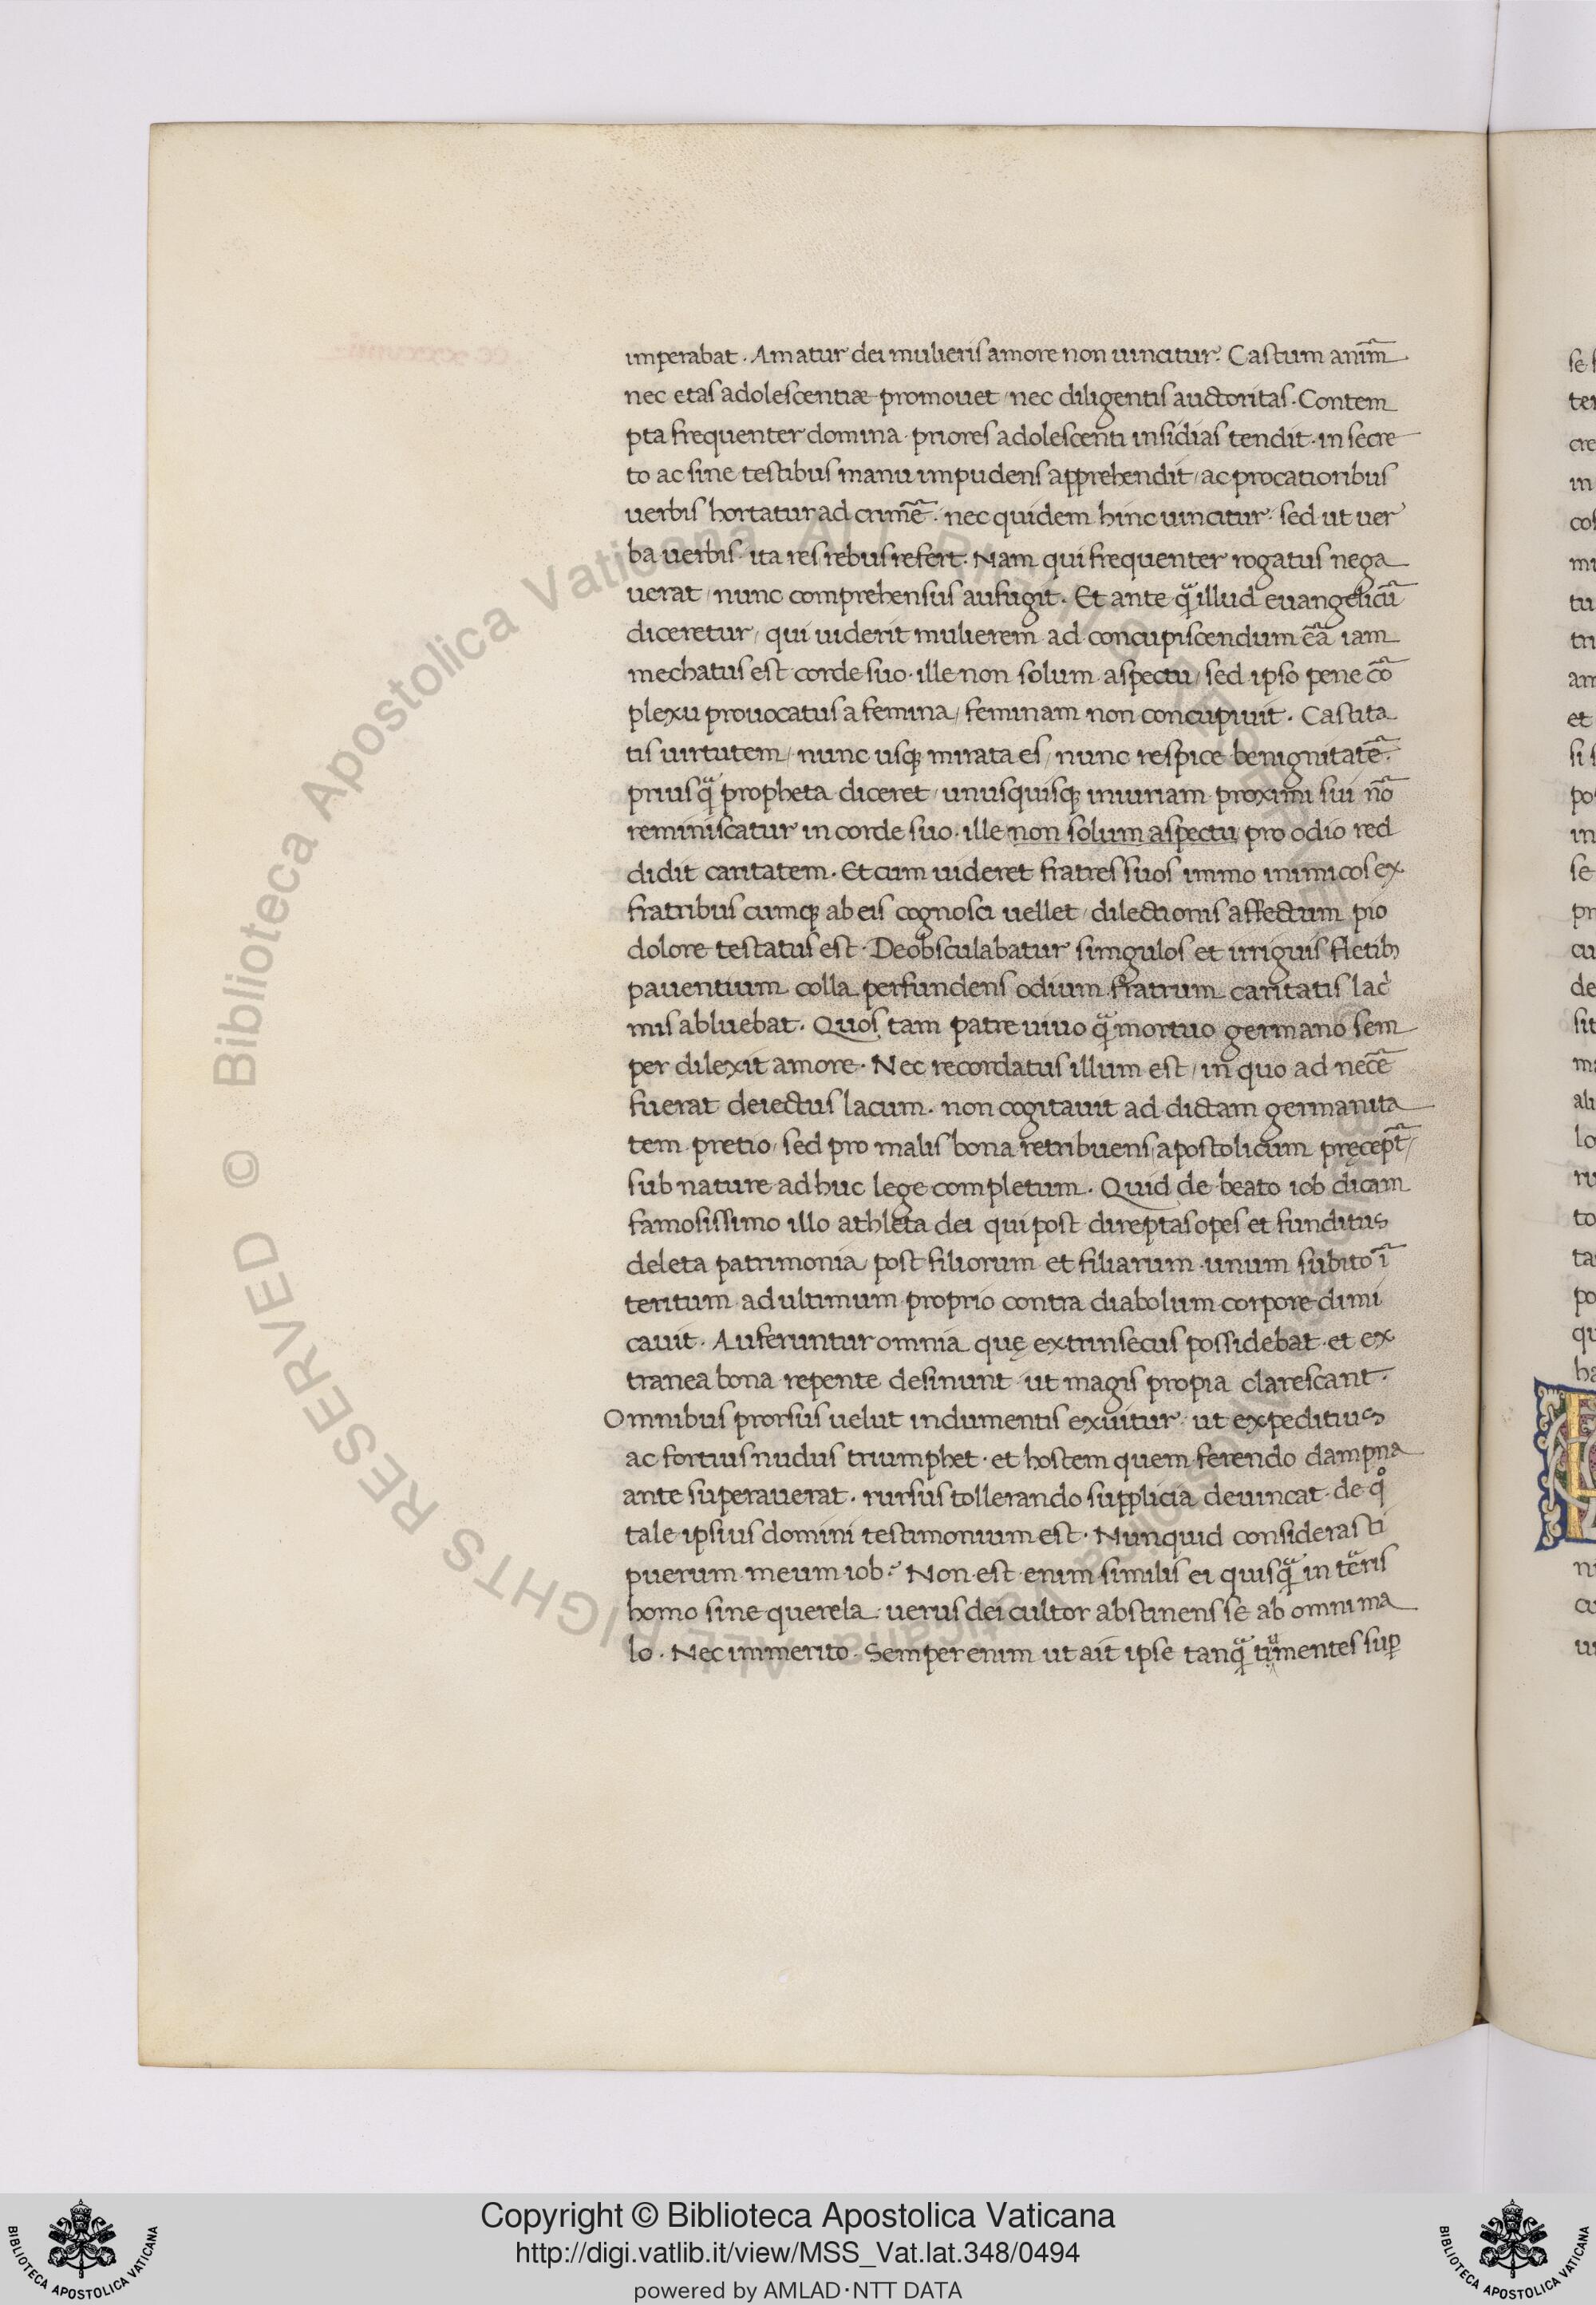 imperabat. Amatur dei mulieris amore non uincitur. Castum anim̄
nec etas adolescentiæ promouet nec diligentis auctoritas. Contem
pta frequenter domina priores adolescenti insidias tendit. in secre
to ac sine testibus manu impudens apprehendit, ac procatioribus
uerbis hortatur ad crimē. nec quidem hinc uincitur. sed ut uer
ba uerbis ita res rebus refert. Nam qui frequenter rogatus nega
uerat, nunc comprehensus aufugit. Et ante q̃ illud euangelicū
diceretur, qui uiderit mulierem ad concupiscendum eā iam
mechatus est corde suo. ille non solum aspectu, sed ipso pene cō
plexu prouocatus a femina, feminam non concupiuit. Castita
tis uirtutem, nunc usq; mirata es, nunc respice benignitatē.
priusq̃ propheta diceret, unusquisq; iniuriam proximi sui nō
reminiscatur in corde suo. ille non solum aspectu pro odio red
didit caritatem. Et cum uideret fratres suos immo inimicos ex
fratribus cumq; ab eis cognosci uellet, dilectionis affectum pio
dolore testatus est. Deobsculabatur simgulos et irriguis fletib;
pauentium colla perfundens odium fratrum caritatis lac̀
mis abluebat. Quos tam patre uiuo q̃ mortuo germano sem
per dilexit amore. Nec recordatus illum est, in quo ad necē
fuerat deiectus lacum. non cogitauit ad dictam germanita
tem pretio, sed pro malis bona retribuens, apostolicum pręcept̄,
sub nature adhuc lege completum. Quid de beato iob dicam
famosissimo illo athleta dei qui post direptas opes et funditus
deleta patrimonia, post filiorum et filiarum unum subito ī
teritum ad ultimum proprio contra diabolum corpore dimi
cauit. Auferuntur omnia quę extrinsecus possidebat. et ex
tranea bona repente desinunt ut magis propia clarescant.
Omnibus prorsus uelut indumentis exuitur ut expeditius
ac fortius nudus triumphet. et hostem quem ferendo dampna
ante superauerat. rursus tollerando supplicia deuincat. de q°
tale ipsius domini testimonium est. Nunquid considerasti
puerum meum iob? Non est enim similis ei quisq̃ in teris
homo sine querela. uerus dei cultor abstinens se ab omni ma
lo. Nec immerito. Semper enim ut ait ipse tanq̃ timentes sup̱
se s
ter
cre
in
cos
mi
tu
tri
am
et
si s
pos
in
se
pr
cu
de
sit
ma
ali
lo
ru
to
ta
po
qu
ha
ni
co
ui
© Biblioteca Apostolica Vaticana ALL RIGHTS RESERVED © Biblioteca Apostolica Vaticana ALL RIGHTS RESERVED
Copyright © Biblioteca Apostolica Vaticana
http://digi.vatlib.it/view/MSS_Vat.lat.348/0494
powered by AMLAD·NTT DATA
BIBLIOTECA APOSTOLICA VATICANA
BIBLIOTECA APOSTOLICA VATICANA